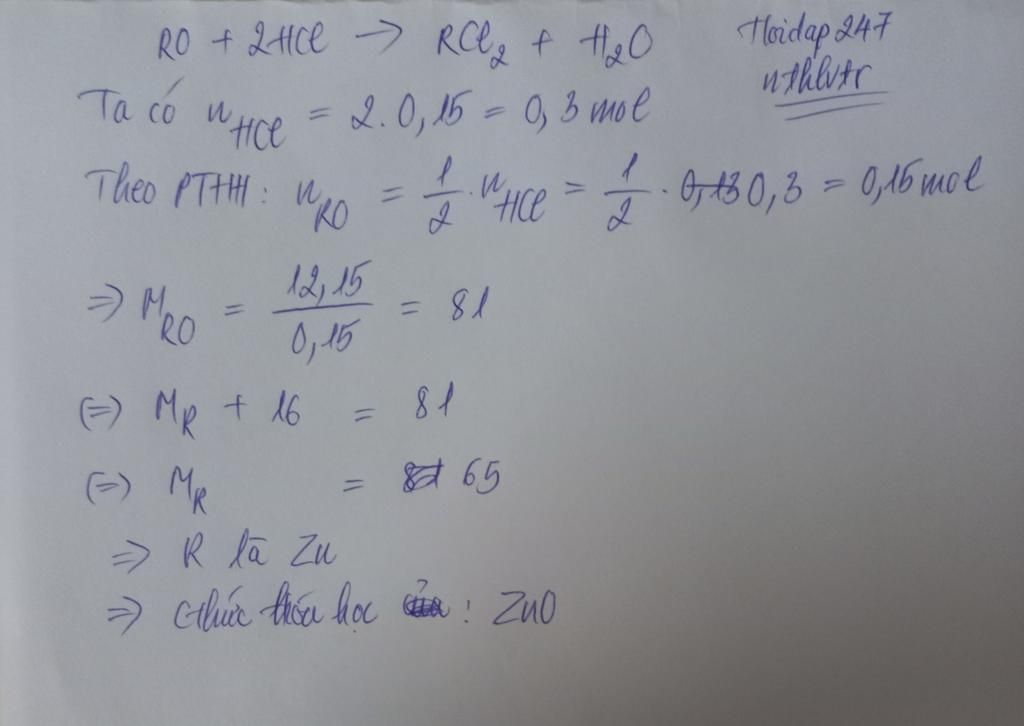 RO + 2HCl → RCl₂ + H₂O
Hoidap247
nthlvtr
Ta có n_HCl = 2.0,15 = 0,3 mol
Theo PTHH: n_RO = 1/2 . n_HCl = 1/2 . 0,3 = 0,15 mol
=> M_RO = 12,15/0,15 = 81
(=) M_R + 16 = 81
(=) M_R = 65
=> R là Zn
=> CThức hóa học : ZnO